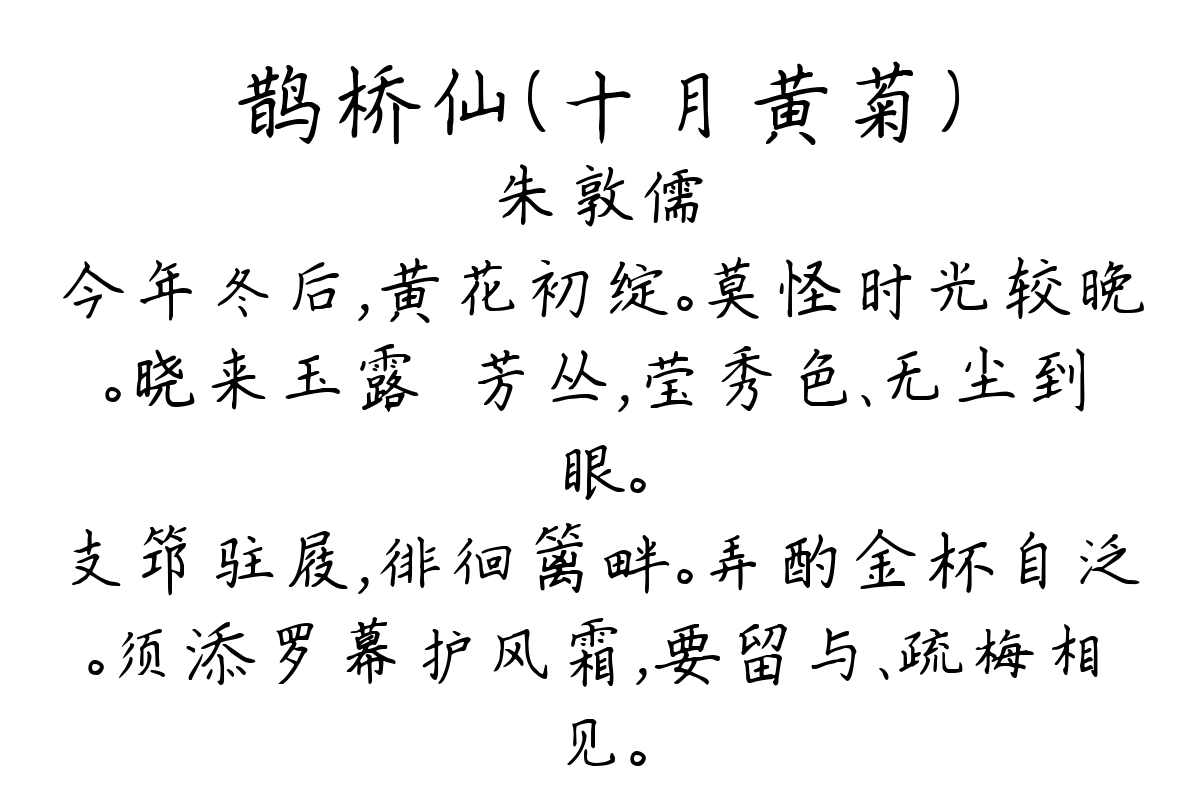 鹊桥仙(十月黄菊)
朱敦儒
今年冬后,黄花初绽。莫怪时光较晚
。晓来玉露 芳丛,莹秀色、无尘到
眼。
支筇驻屐,徘徊篱畔。弄酌金杯自泛
。须添罗幕护风霜,要留与、疏梅相
见。